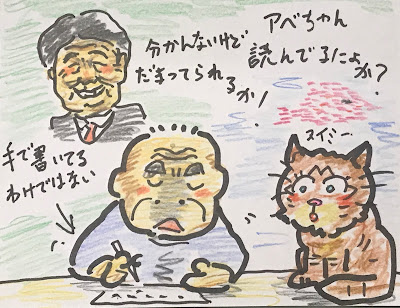 アベちゃん
読んでるにょ
か?
分かんないけど
だまってられ
るか!
スイミー
手で書いてる
わけではない